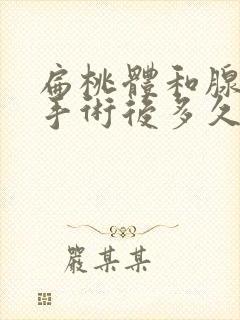 扁桃體和腺
手術後多久
嚴某某